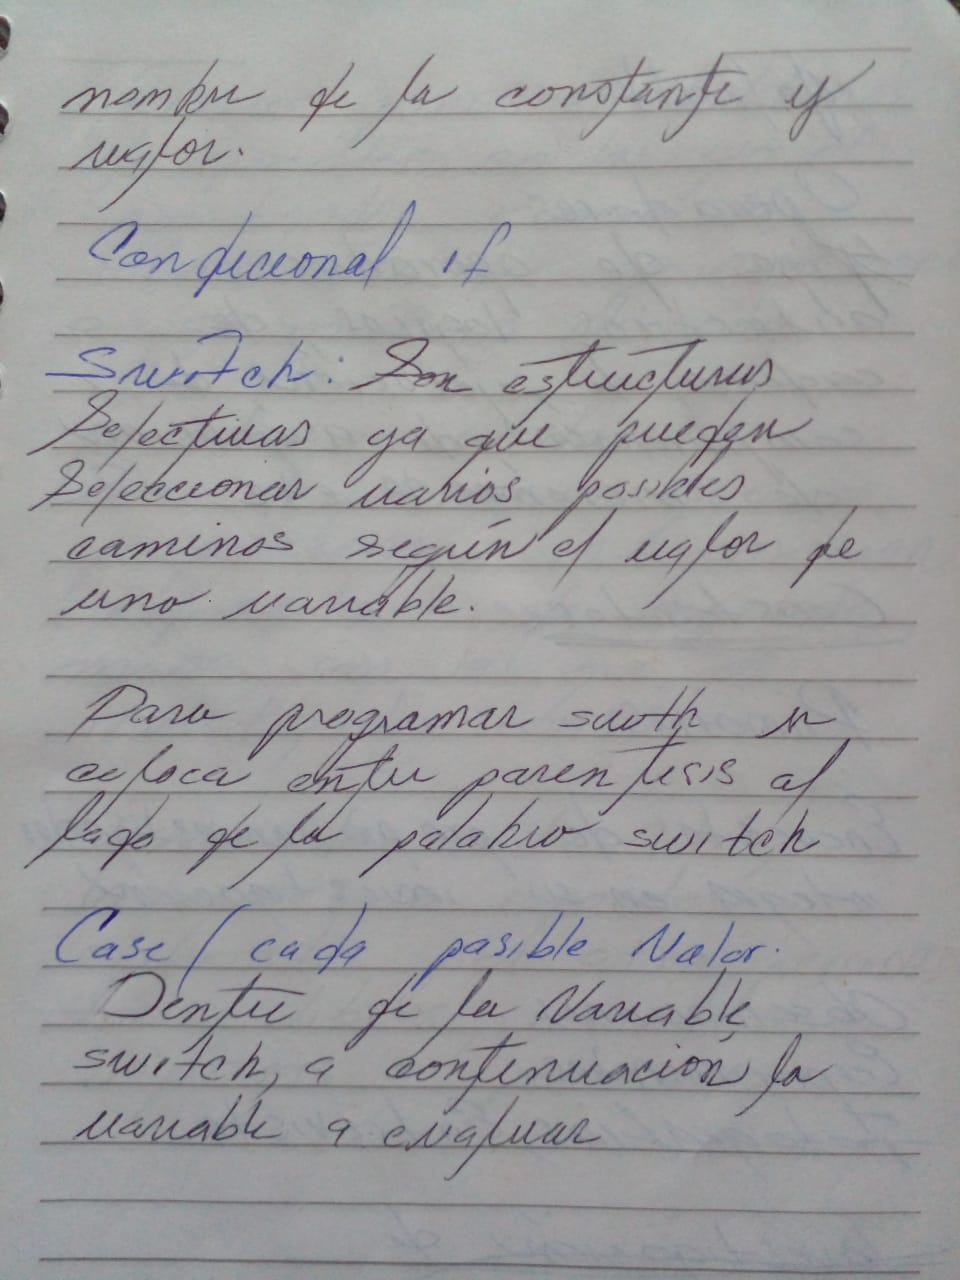 nombre de la constante y
valor.
Condicional if
Switch: Son estructuras
Selectivas ya que pueden
Seleccionar varios posibles
caminos según el valor de
una variable.
Para programar swith se
coloca entre parentesis al
lado de la palabra switch
Case / cada pasible Valor.
Dentre de la Variable
switch, a contenuación la
variable a evaluar